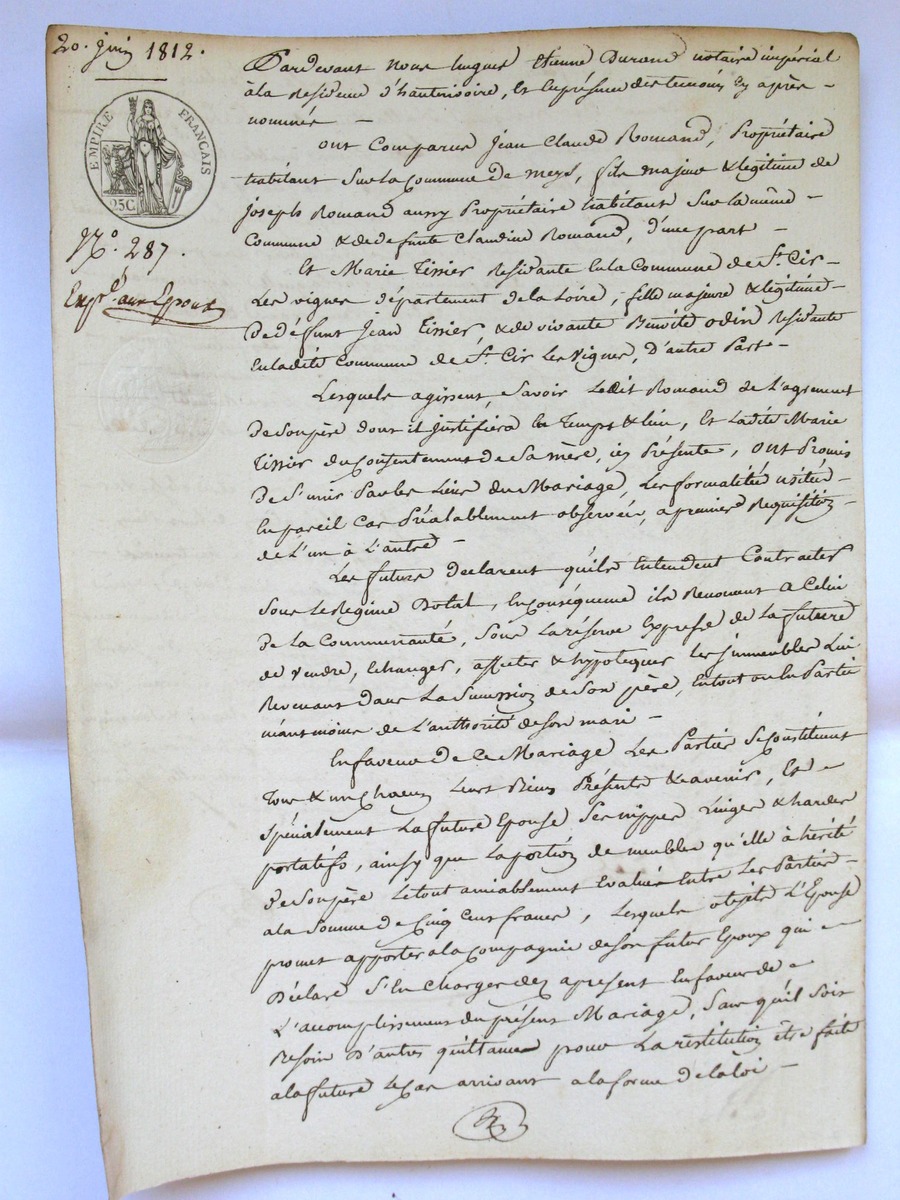 20. juin 1812.
EMPIRE FRANÇAIS
25C
N.º 287.
Exp.é aux Epoux
Pardevant nous hugues Etienne Durand notaire impérial
à la Residence d'hauterivoire, Et En présence des temoins Cy après
nommés
ont Comparus Jean Claude Romand, Propriétaire
habitant Sur la Commune de Meys, fils majeur & legitime de
Joseph Romand aussy Propriétaire habitant Sur la même
Commune & de defunte Claudine Romand, d'une part
Et Marie Tissier Residante En la Commune de St. Cir
Les vignes département de la Loire, fille majeure & legitime
De défunt Jean Tissier, & de vivante Benoite odin Residante
En la dite Commune de St. Cir Les Vignes, D'autre Part
Lesquels agissent, Savoir Ledit Romand de L'agrement
De Son père dont il justifiera En Temps & lieu, Et Ladite Marie
Tissier du Consentement de Sa mère, icy Présente, ont Promis
De S'unir Par les Liens du Mariage, Les formalités usitées
En pareil Cas Préalablement observées, a premiere Requisition
de L'un à L'autre
Les futurs declarent qu'ils Entendent Contracter
Sous Le Régime Dotal, En Conséquence ils Renoncent a Celui
De la Communauté, Sous La réserve Expresse de La future
de Vendre, Echanger, affecter & hypotequer Les immeubles Lui
Revenant Dans La Succession de Son père, En tout ou En Partie
néant moins de L'authorité de Son mari
En faveur de Ce Mariage Les Parties Se Constituent
Tous & un Chacun Leurs Biens Présents & avenir, Et
Spécialement La future Epouse Ses nippes Linges & hardes
portatifs, ainsy que La portion de meubles qu'elle à hérité
de Son père Le tout amiablement Evalués Entre Les Parties
a la Somme de Cinq Cens francs, Lesquels objets L'Epouse
promet apporter a la Compagnie de Son futur Epoux qui
Déclare S'En Charger dez apresent En faveur de
L'accomplissement du présent Mariage, Sans qu'il Soit
Besoin D'autres quittance pour La restitution être faite
a la future Le Cas arrivant a la forme De la Loi